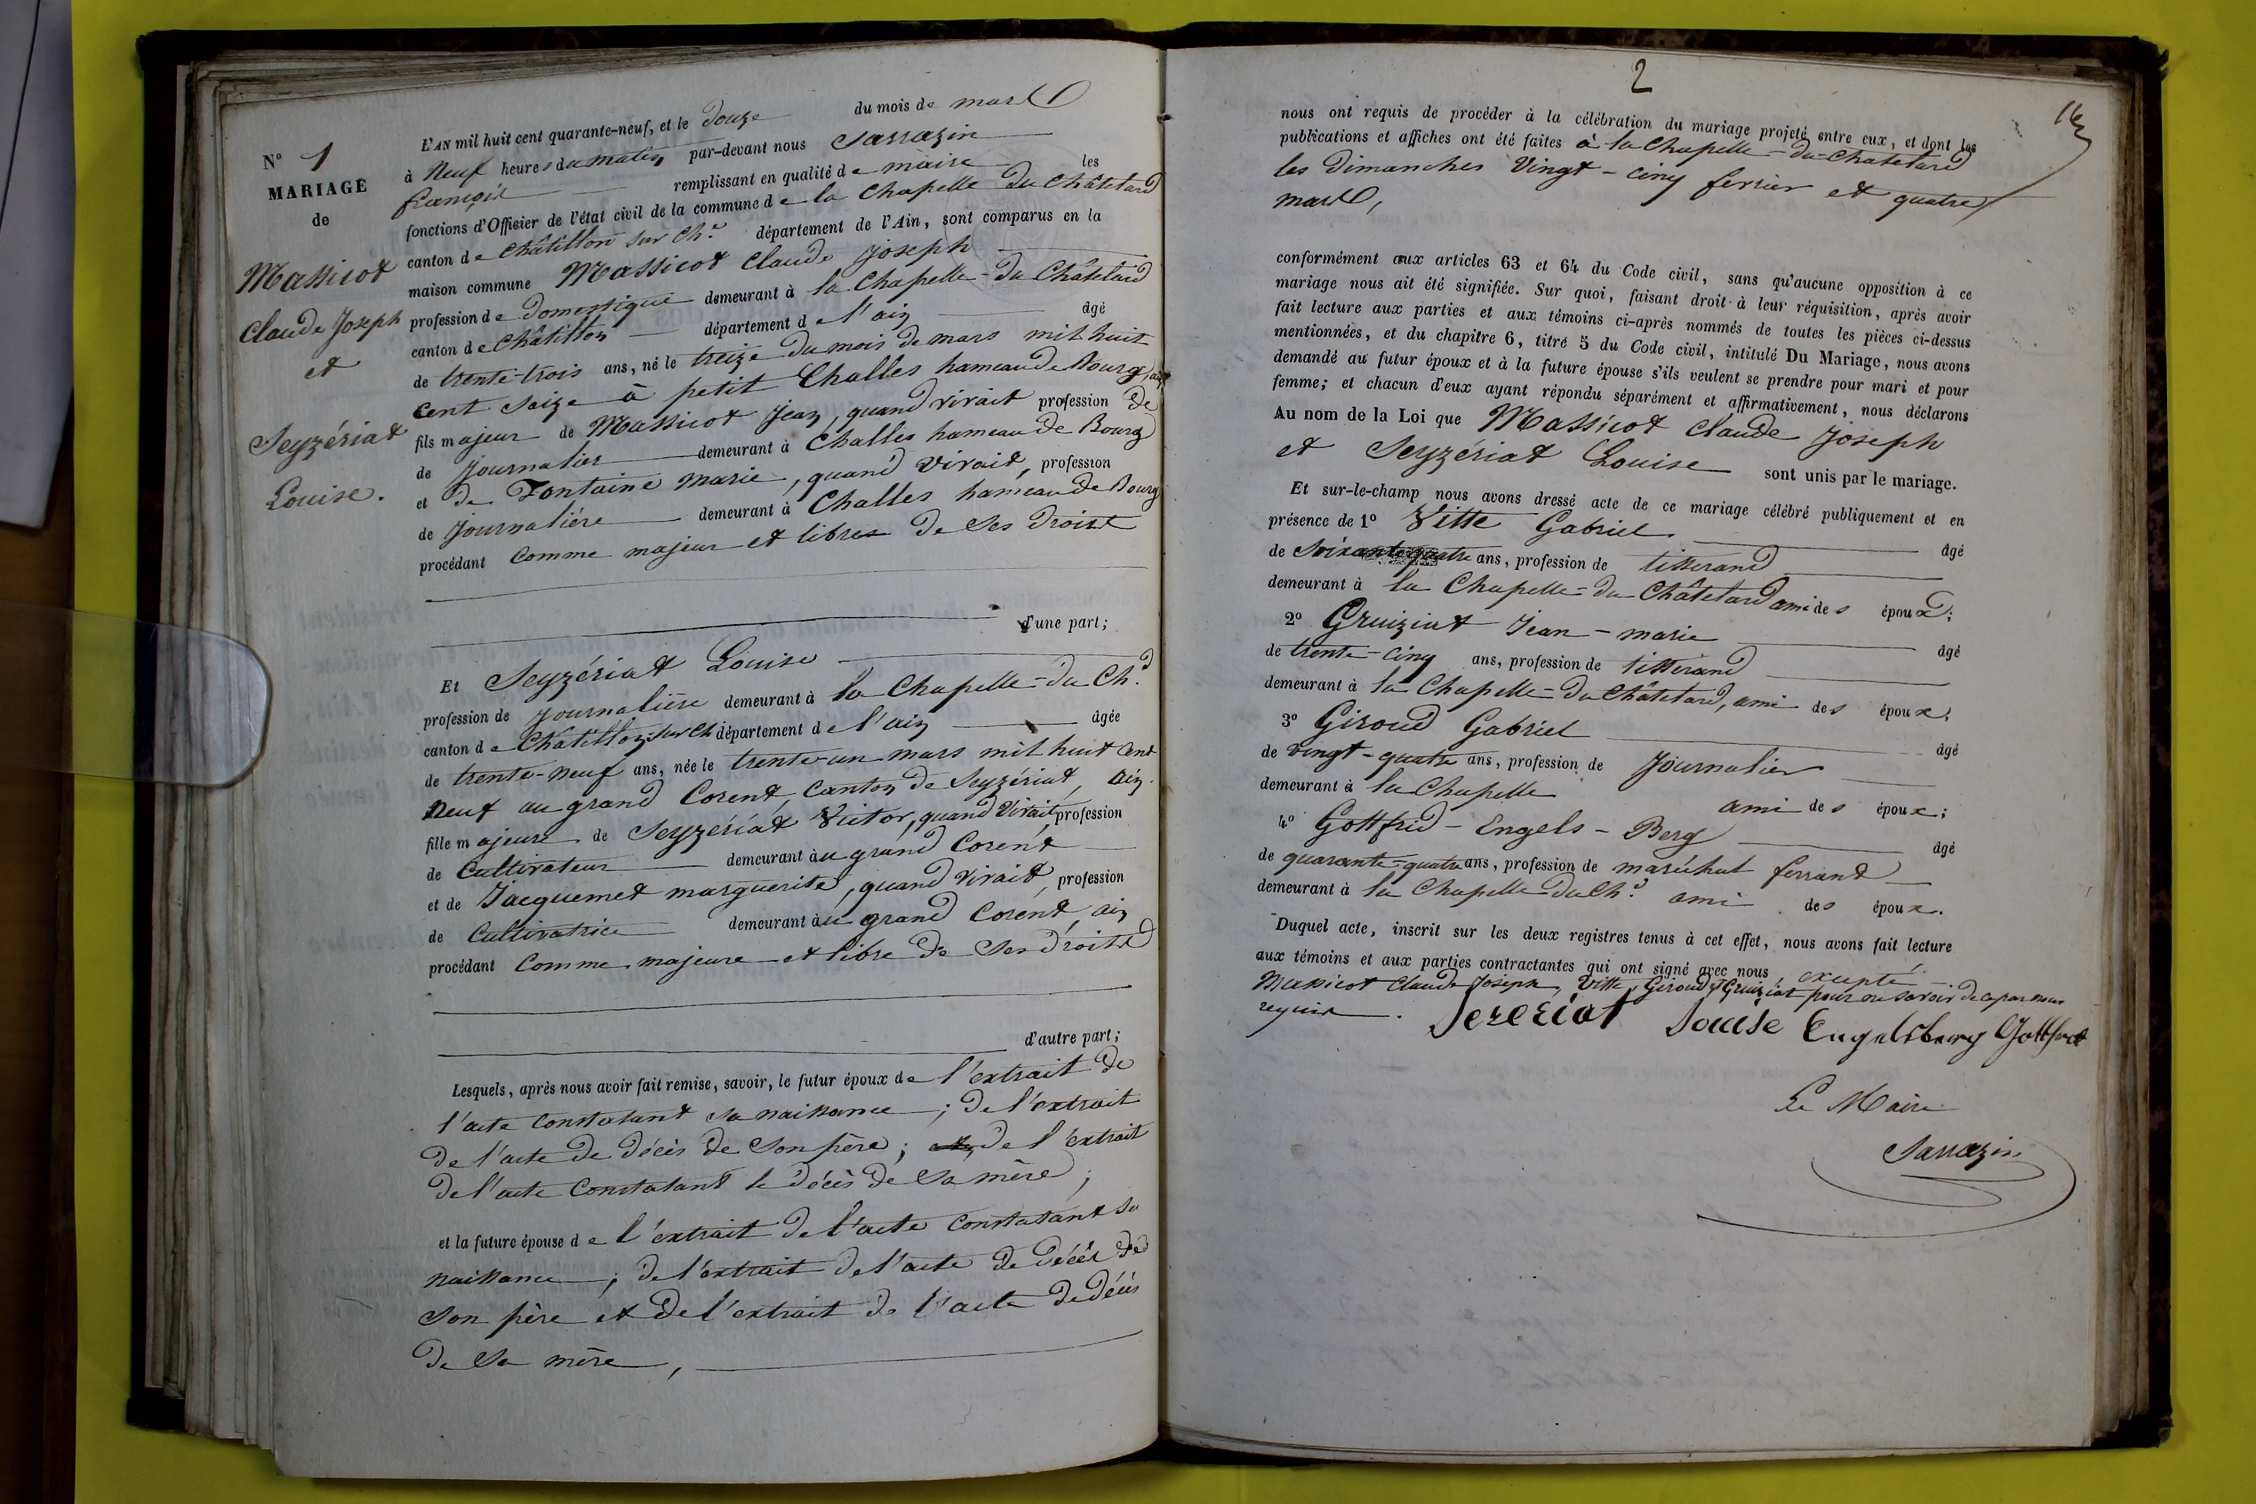 N° 1
MARIAGE
de
Massicot
Claude Joseph
et
Seyzériat
Louise.
L'AN mil huit cent quarante-neuf, et le douze du mois de mars
à Neuf heures du matin par-devant nous Sarrazin
françois remplissant en qualité de maire les
fonctions d'Officier de l'état civil de la commune de la Chapelle du Châtelard
canton de Châtillon sur Ch.e département de l'Ain, sont comparus en la
maison commune Massicot Claude Joseph
profession de Domestique demeurant à la Chapelle-du Châtelard
canton de Châtillon département de l'ain âgé
de trente-trois ans, né le treize du mois de mars mil huit
cent seize à petit Challes hameau de Bourg, ain
fils majeur de Massicot Jean, quand vivait profession de
de Journalier demeurant à Challes hameau de Bourg
et de Fontaine marie, quand vivait, profession
de Journalière demeurant à Challes hameau de Bourg
procédant Comme majeur et libre de Ses droits
d'une part;
Et Seyzériat Louise
profession de Journalière demeurant à la Chapelle-du Ch.d
canton de Châtillon sur Ch département de l'ain âgée
de trente-neuf ans, née le trente-un mars mil huit cent
neuf au grand Corent, Canton de Seyzériat, ain.
fille majeure de Seyzériat Victor, quand vivait, profession
de Cultivateur demeurant au grand Corent
et de Jacquemet marguerite, quand vivait, profession
de Cultivatrice demeurant au grand Corent, ain
procédant Comme majeure et libre de Ses droits
d'autre part;
Lesquels, après nous avoir fait remise, savoir, le futur époux de l'extrait de
l'acte Constatant sa naissance; de l'extrait
de l'acte de décès de Son père; de l'extrait
de l'acte Constatant le décès de Sa mère;
et la future épouse de l'extrait de l'acte Constatant sa
naissance; de l'extrait de l'acte de décès de
Son père et de l'extrait de l'acte de décès
de Sa mère,
2
nous ont requis de procéder à la célébration du mariage projeté entre eux, et dont les
publications et affiches ont été faites à la Chapelle-du-Châtelard
les Dimanches Vingt-cinq fevrier et quatre
mars,
conformément aux articles 63 et 64 du Code civil, sans qu'aucune opposition à ce
mariage nous ait été signifiée. Sur quoi, faisant droit à leur réquisition, après avoir
fait lecture aux parties et aux témoins ci-après nommés de toutes les pièces ci-dessus
mentionnées, et du chapitre 6, titre 5 du Code civil, intitulé Du Mariage, nous avons
demandé au futur époux et à la future épouse s'ils veulent se prendre pour mari et pour
femme; et chacun d'eux ayant répondu séparément et affirmativement, nous déclarons
Au nom de la Loi que Massicot Claude Joseph
et Seyzériat Louise sont unis par le mariage.
Et sur-le-champ nous avons dressé acte de ce mariage célébré publiquement et en
présence de 1° Vitte Gabriel âgé
de Soixante quatre ans, profession de titterand
demeurant à la Chapelle-du Châtelard ami des époux;
2° Gruiziat Jean-marie âgé
de trente-cinq ans, profession de titterand
demeurant à la Chapelle-du Châtelard, ami des époux;
3° Giroud Gabriel âgé
de vingt-quatre ans, profession de Journalier
demeurant à la Chapelle ami des époux;
4° Gottfrid-Engels-Berg âgé
de quarante-quatre ans, profession de maréchal ferrant
demeurant à la Chapelle du Ch.d ami des époux.
Duquel acte, inscrit sur les deux registres tenus à cet effet, nous avons fait lecture
aux témoins et aux parties contractantes qui ont signé avec nous, excepté
Massicot Claude Joseph, Vitte, Giroud, Gruiziat pour ne savoir de ce par nous
requis.
Sezeriat Louise Engelsberg Gottfrid
Le Maire
Sarrazin